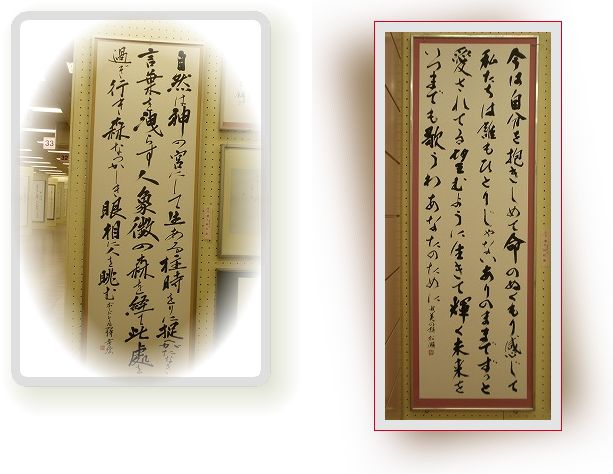 33
32
自然は神の宮にして生ある柱時をりに捉へがたなき
言葉を洩らす人象徴の森を経て此處を
過ぎ行き森なつかしき眼相に人を眺む
今は自分を抱きしめて命のぬくもり感じて
私たちは誰もひとりじゃないありのままでずっと
愛されてる望むように生きて輝く未来を
いつまでも歌うわあなたのために